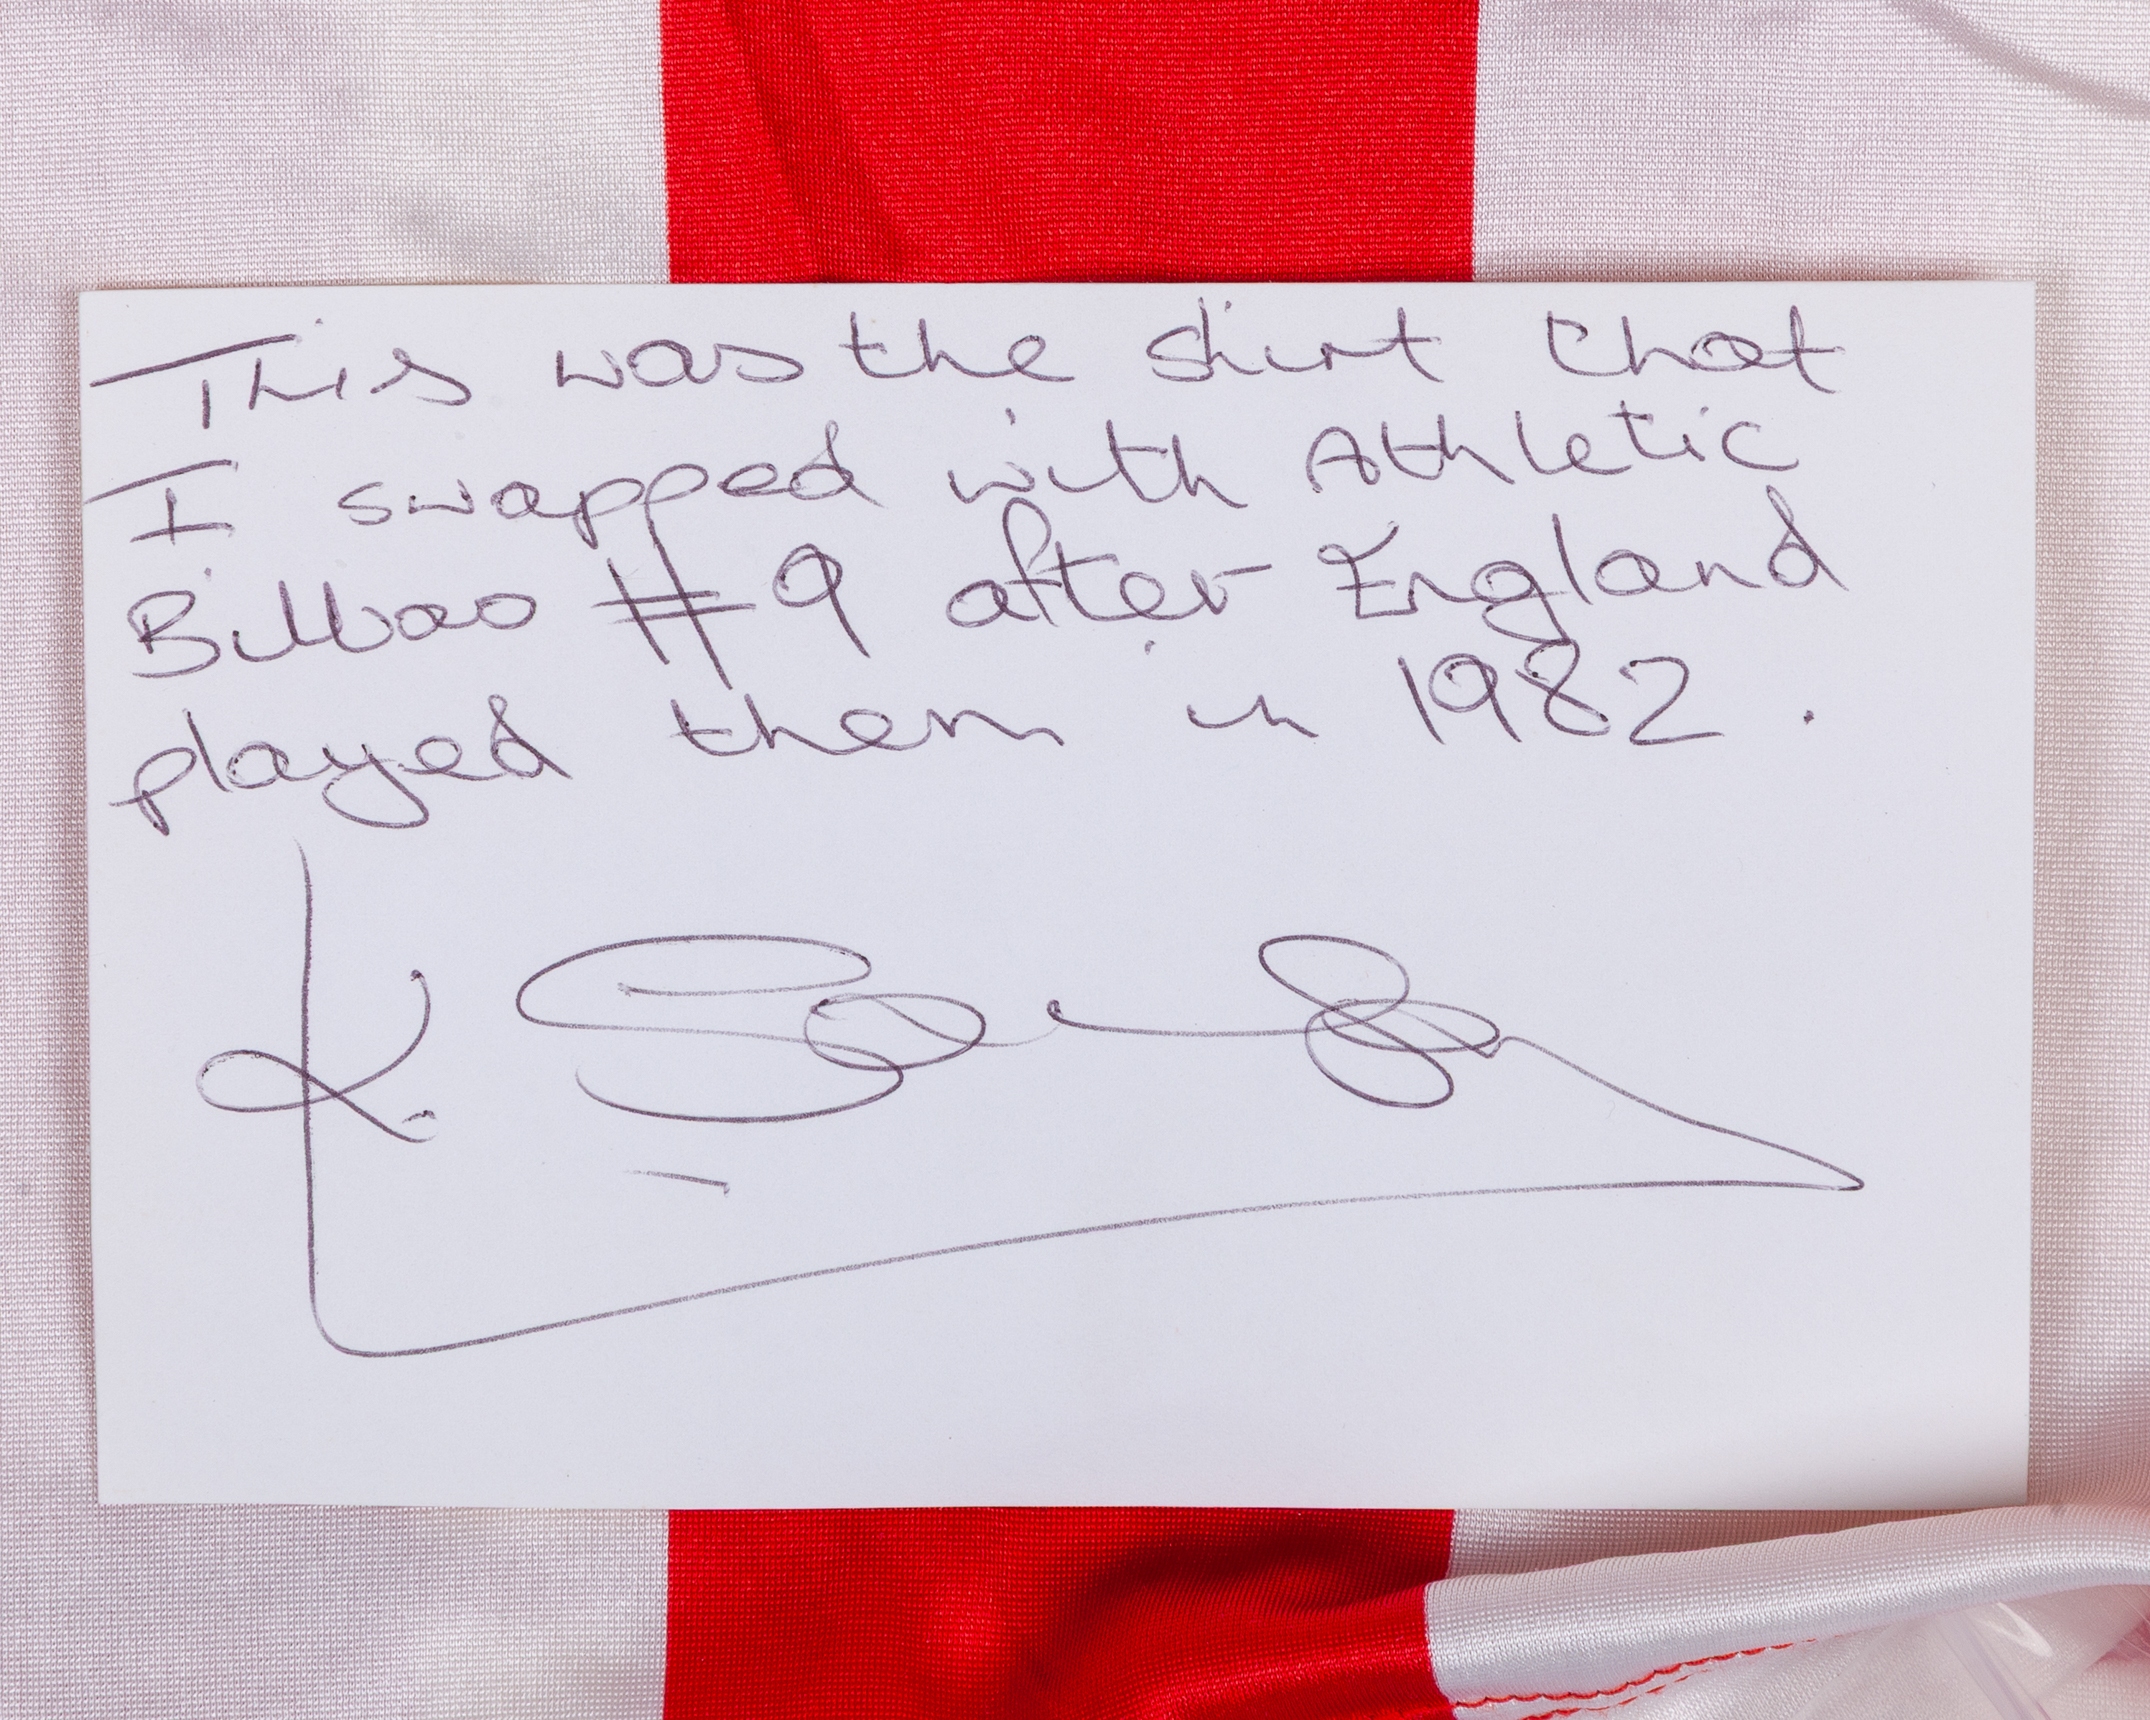 This was the shirt that
I swapped with Athletic
Bilbao #9 after England
played them in 1982.
K.